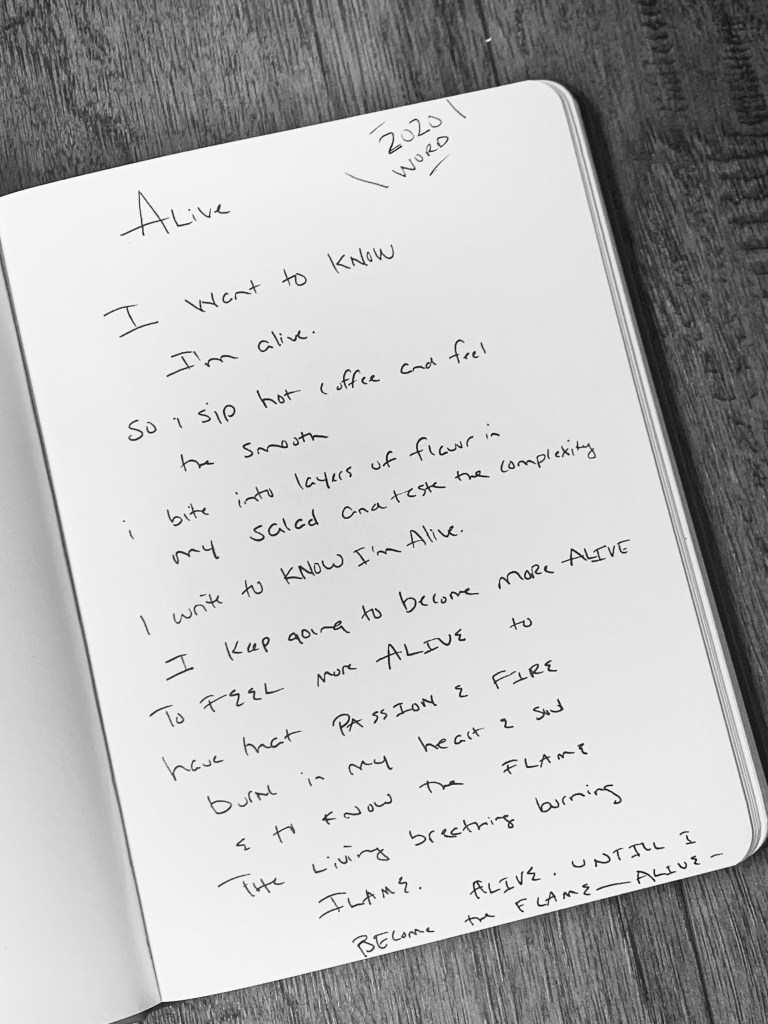 2020
WORD
ALive
I want to KNOW
I'm alive.
So i sip hot coffee and feel
the smooth
i bite into layers of flavor in
my salad and taste the complexity
I write to KNOW I'm Alive.
I keep going to become more ALIVE
To FEEL more ALIVE to
have that PASSION & FIRE
burn in my heart & soul
& to KNOW the FLAME
THe Living breathing burning
FLAME. ALIVE. UNTILL I
BEcome the FLAME—ALIVE—